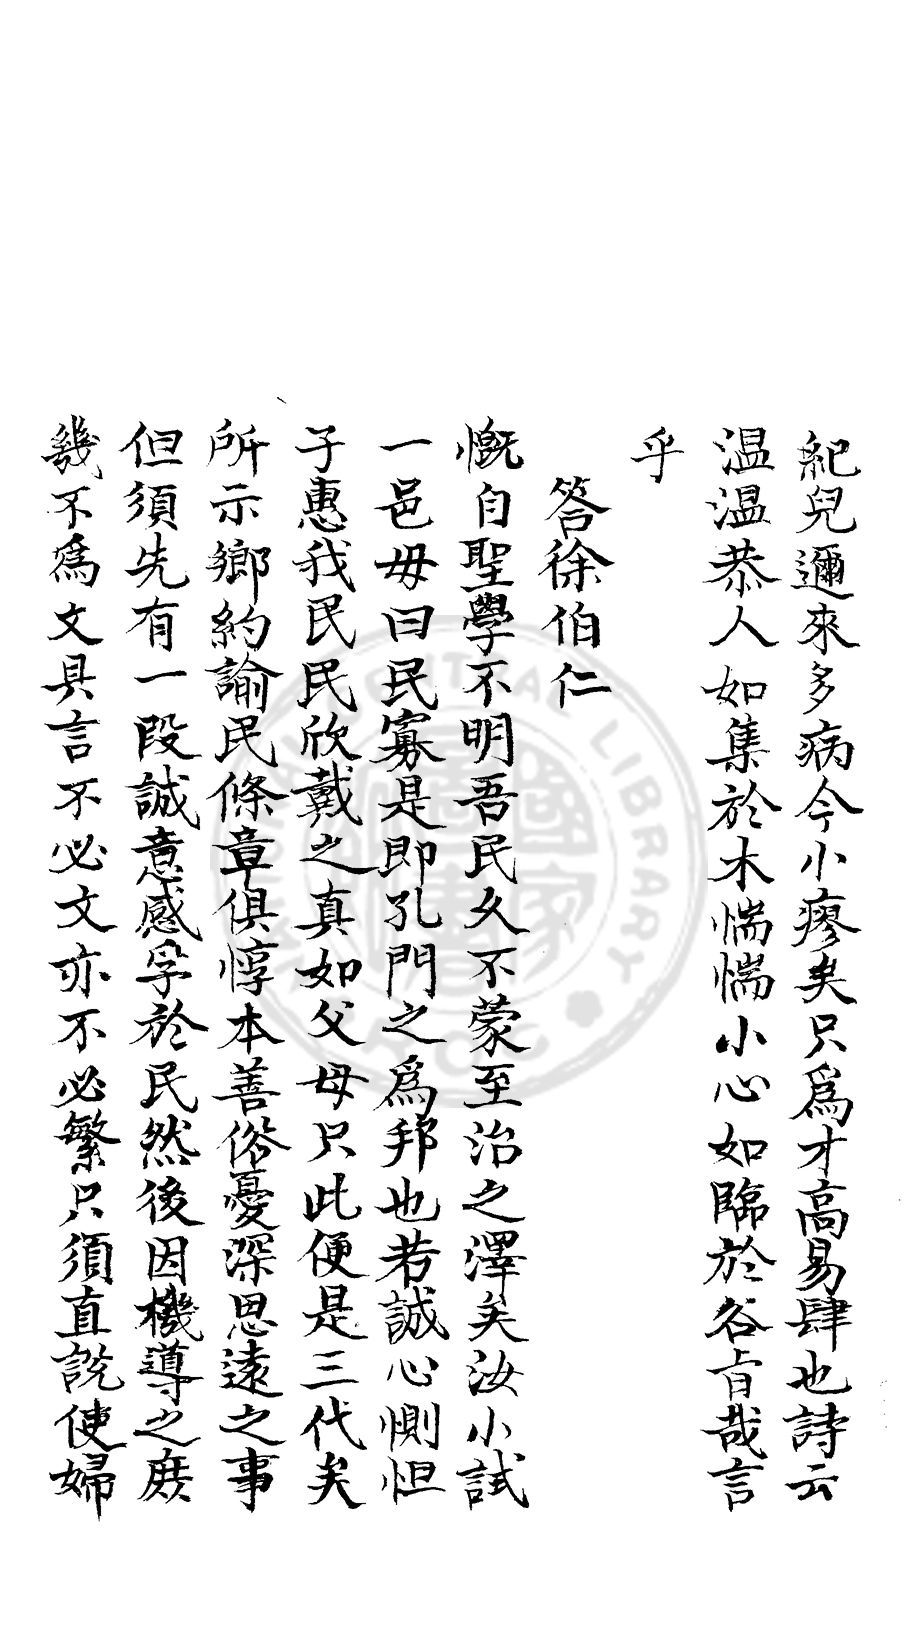 紀兒邇來多病今小瘳矣只爲才高易肆也詩云
温温恭人如集於木惴惴小心如臨於谷旨哉言
乎
答徐伯仁
慨自聖學不明吾民久不蒙至治之澤矣汝小試
一邑毋曰民寡是即孔門之爲邦也若誠心惻怛
子惠我民民欣戴之真如父母只此便是三代矣
所示鄉約諭民條章俱惇本善俗憂深思遠之事
但須先有一段誠意感孚於民然後因機導之庶
幾不爲文具言不必文亦不必繁只須直說使婦